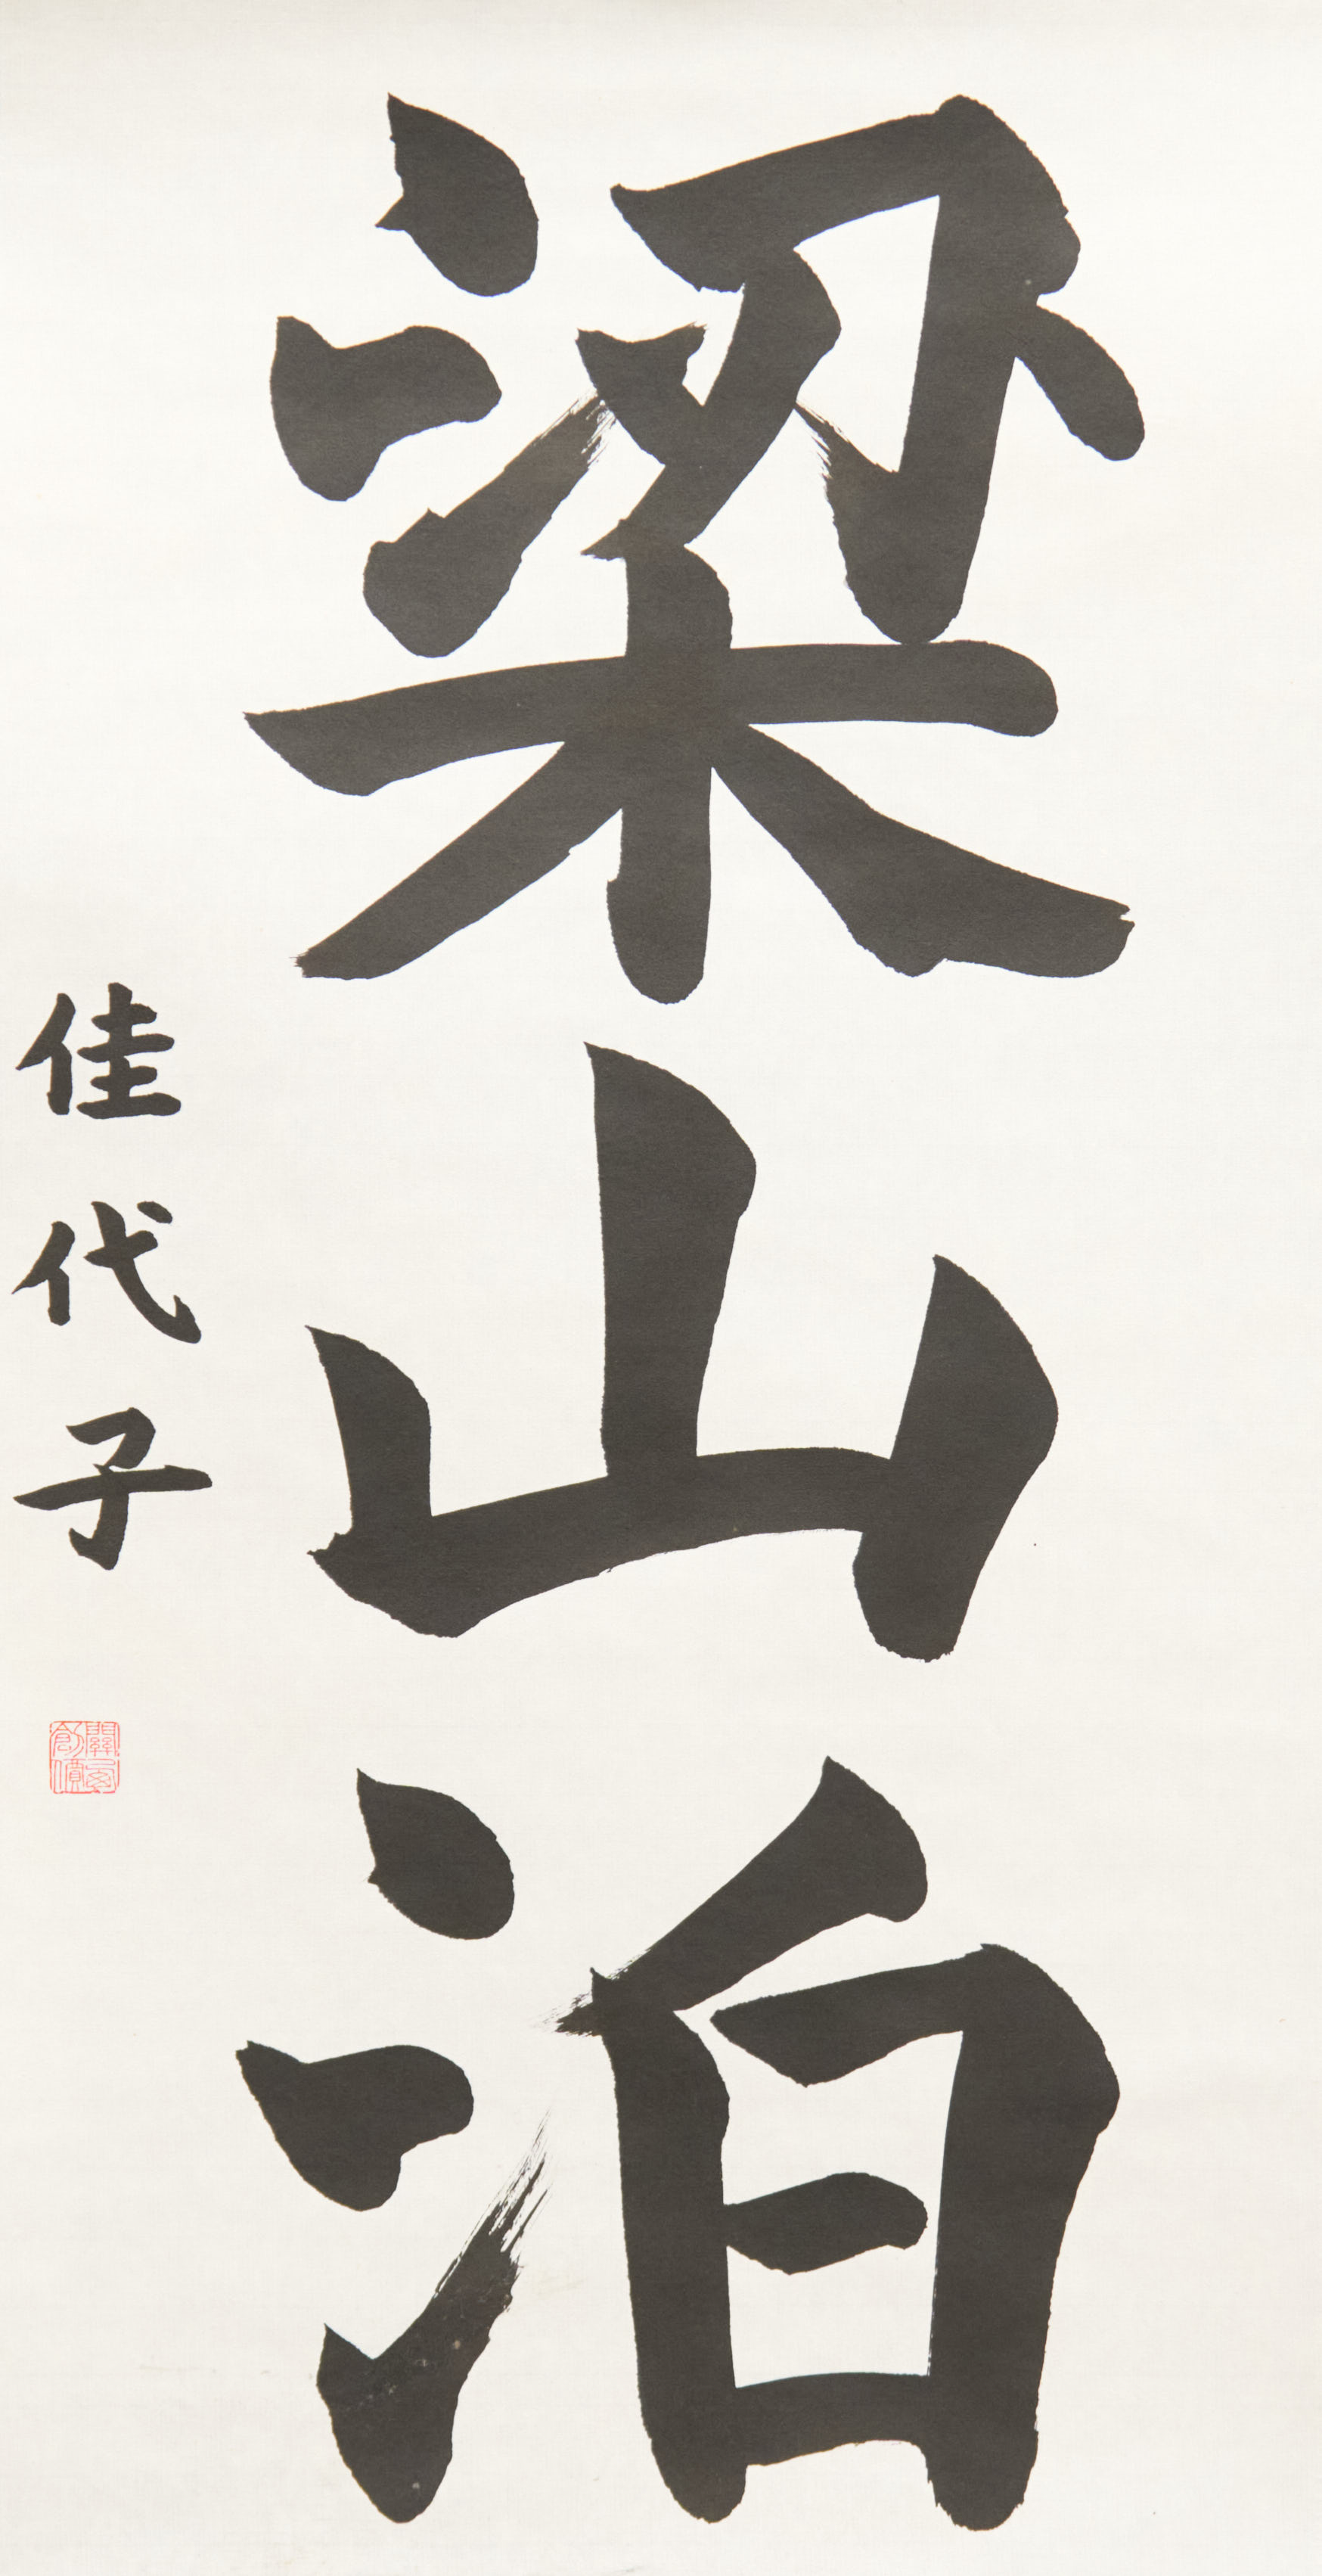 梁山泊
佳代子